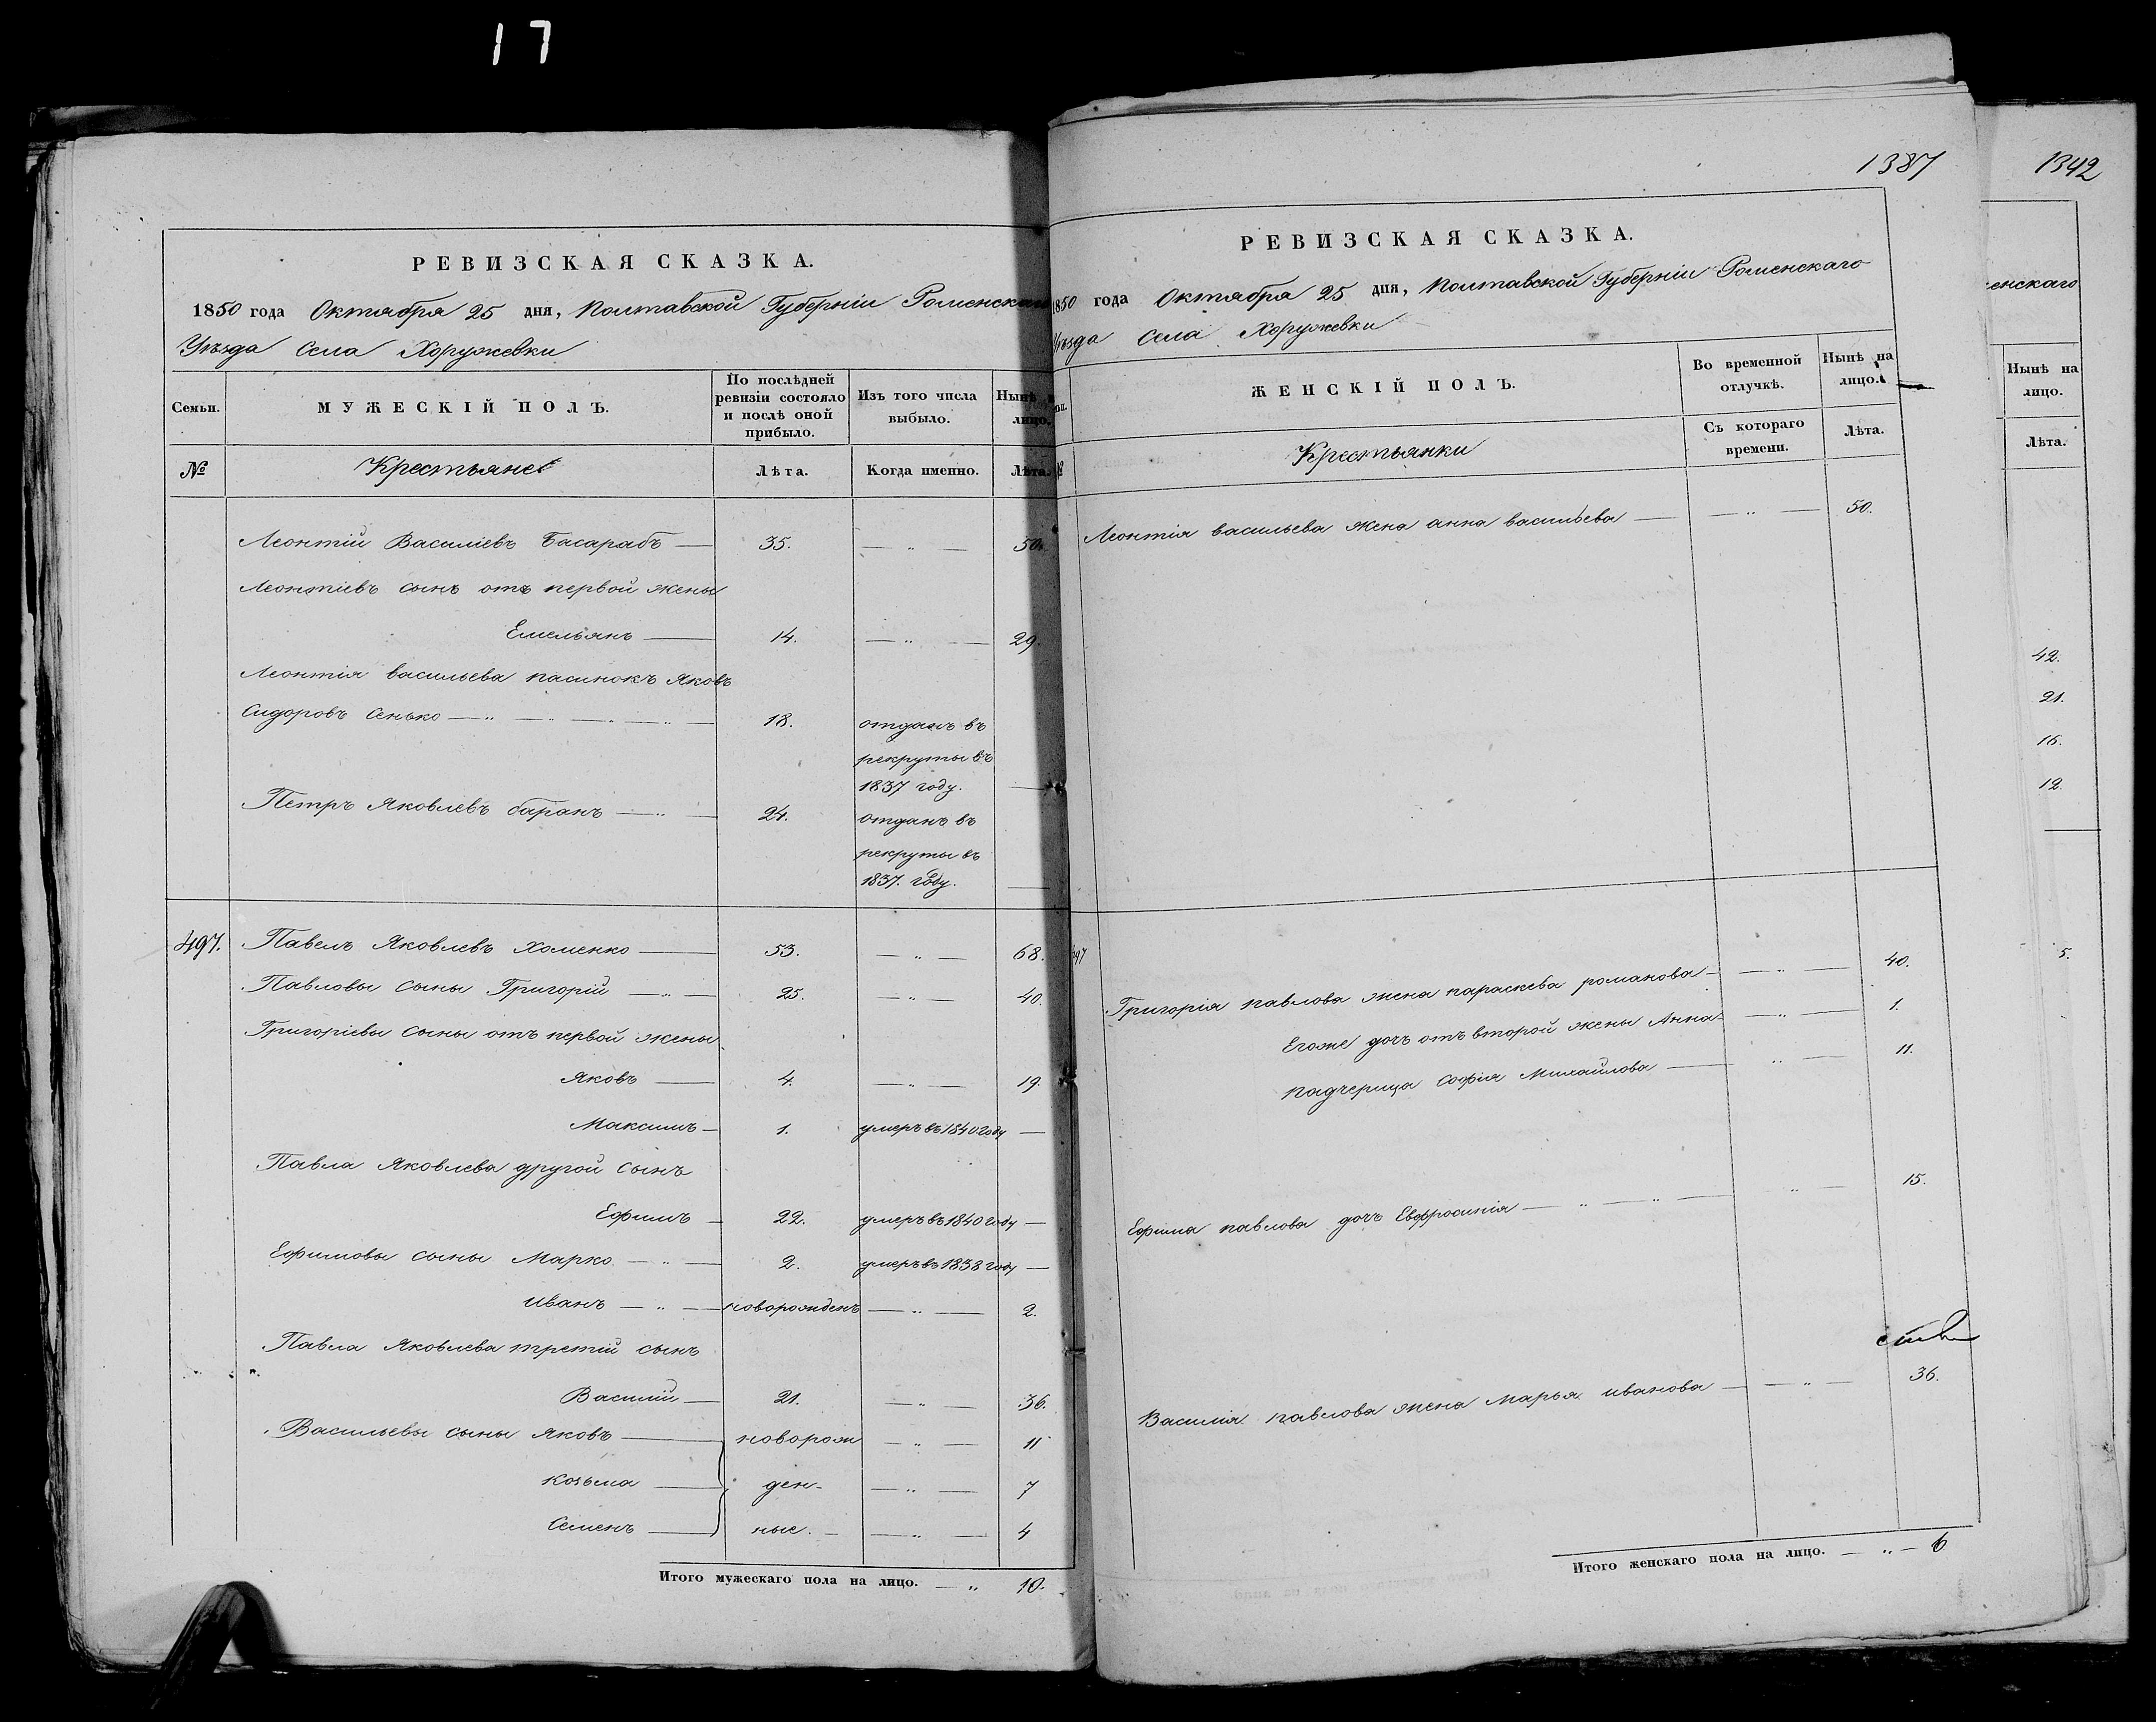 17
РЕВИЗСКАЯ СКАЗКА.
1850 года Октября 25 дня, Полтавской Губерніи Роменскаго
Уѣзда Села Хоружевки
Семьи.
МУЖЕСКІЙ ПОЛЪ.
По послѣдней ревизіи состояло и послѣ оной прибыло.
Изъ того числа выбыло.
Нынѣ на лицо.
№
Крестьяне
Лѣта.
Когда именно.
Лѣта.
Леонтій Василіевъ Басарабъ — 35. — „ — 50.
Леонтіевъ сынъ отъ первой жены
Емельянъ — 14. — „ — 29.
Леонтія васильева пасинокъ Яковъ
Сидоровъ Сенько — „ — „ — „ — „ — 18. отданъ въ
рекруты въ
1837 году. —
Петръ Яковлевъ баранъ — „ — 24. отданъ въ
рекруты въ
1837. году. —
497. Павелъ Яковлевъ Хоменко — 53. — „ — 68.
Павловы сыны Григорій — „ — 25. — „ — 40.
Григоріевы сыны отъ первой жены
Яковъ — 4. — „ — 19.
Максимъ — 1. умеръ въ 1840 году —
Павла Яковлева другой сынъ
Ефимъ — 22. умеръ въ 1840 году —
Ефимовы сыны Марко — „ — 2. умеръ въ 1838 году —
Иванъ — „ — новорожденъ — „ — 2.
Павла Яковлева третій сынъ
Василій — 21. — „ — 36.
Васильевы сыны Яковъ — новорож — „ — 11
Козьма — ден- — „ — 7
Семенъ — ные. — — „ — 4
Итого мужескаго пола на лицо. — „ 10.
1387
РЕВИЗСКАЯ СКАЗКА.
1850 года Октября 25 дня, Полтавской Губерніи Роменскаго
Уѣзда Села Хоружевки
ЖЕНСКІЙ ПОЛЪ.
Во временной отлучкѣ.
Нынѣ на лицо.
№
Крестьянки
Съ котораго времени.
Лѣта.
Леонтія васильева жена анна васильева — — „ — 50.
497
Григорія павлова жена параскева романова — — „ — 40.
Егоже дочь отъ второй жены Анна — — „ — 1.
падчерица софія Михайлова — „ — 11.
Ефима павлова дочь Евфросинія — „ — „ — „ — 15.
Василія павлова жена Марья иванова — — „ — 36.
Итого женскаго пола на лицо. — „ — 6
1342
енскаго
Нынѣ на лицо.
Лѣта.
42.
21.
16.
12.
5.